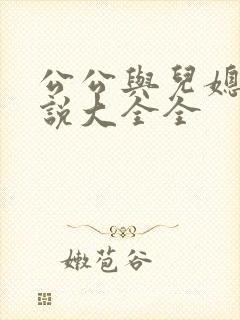 公公與兒媳
說大全全
嫩苞谷